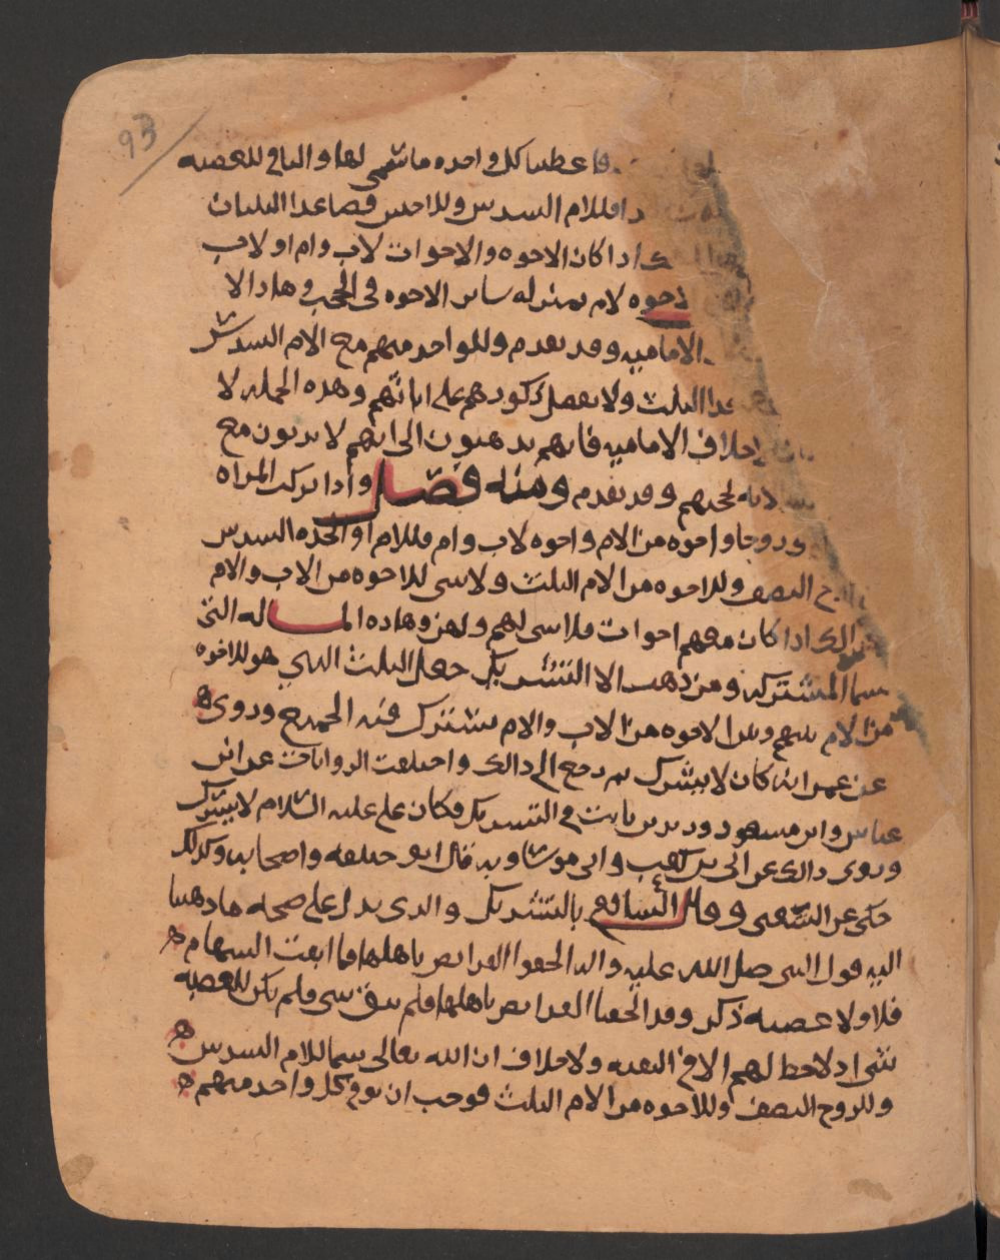 93
فاعطينا كل واحده ماسمي لها والباقي للعصبه
فللام السدس وللاختين فصاعدا الثلثان
اذا كان الاخوه والاخوات لاب وام او لاب
الاخوه لام بمنزله سائر الاخوه في الحجب وهاذا لا
الاماميه وقد تقدم وللواحد منهم مع الام السدس
الثلث ولا يفضل ذكورهم على اناثهم وهذه الجمله لا
خلاف الاماميه فانهم يذهبون الى انهم لا يرثون مع
وقد تقدم ومنه فصل واذا تركت المراه
زوجا واخوه من الام واخوه لاب وام فللام او الجده السدس
النصف وللاخوه من الام الثلث ولا شي للاخوه من الاب والام
اذا كان معهم اخوات فلا شي لهم ولهن وهاذه المساله التي
المشتركه ومن ذهب الا التشريك جعل الثلث الذي هو للاخوه
من الام بينهم وبين الاخوه من الاب والام يشترك فيه الجميع وروى
عن عمر انه كان لا يشرك ثم رجع الى ذالك واختلفت الروايات عن ابن
عباس وابن مسعود وزيد بن ثابت في التشريك فكان علي عليه السلام لا يشرك
وروى ذالك عن ابي بن كعب وابي موسا وبه قال ابو حنيفه واصحابه وكذلك
حكى عن الشعبي وقال الشافعي بالتشريك والذي يدل على صحه ما ذهبنا
اليه قول النبي صلى الله عليه واله الحقوا الفرايض باهلها فما ابقت السهام
فلاولا عصبه ذكر وقد الحقنا الفرايض باهلها فلم يبق شي فلم يكن للعصبه
شي اذ لا حظ لهم الا في البقيه ولا خلاف ان الله تعالى سما للام السدس
وللزوج النصف وللاخوه من الام الثلث فوجب ان نوفي كل واحد منهم